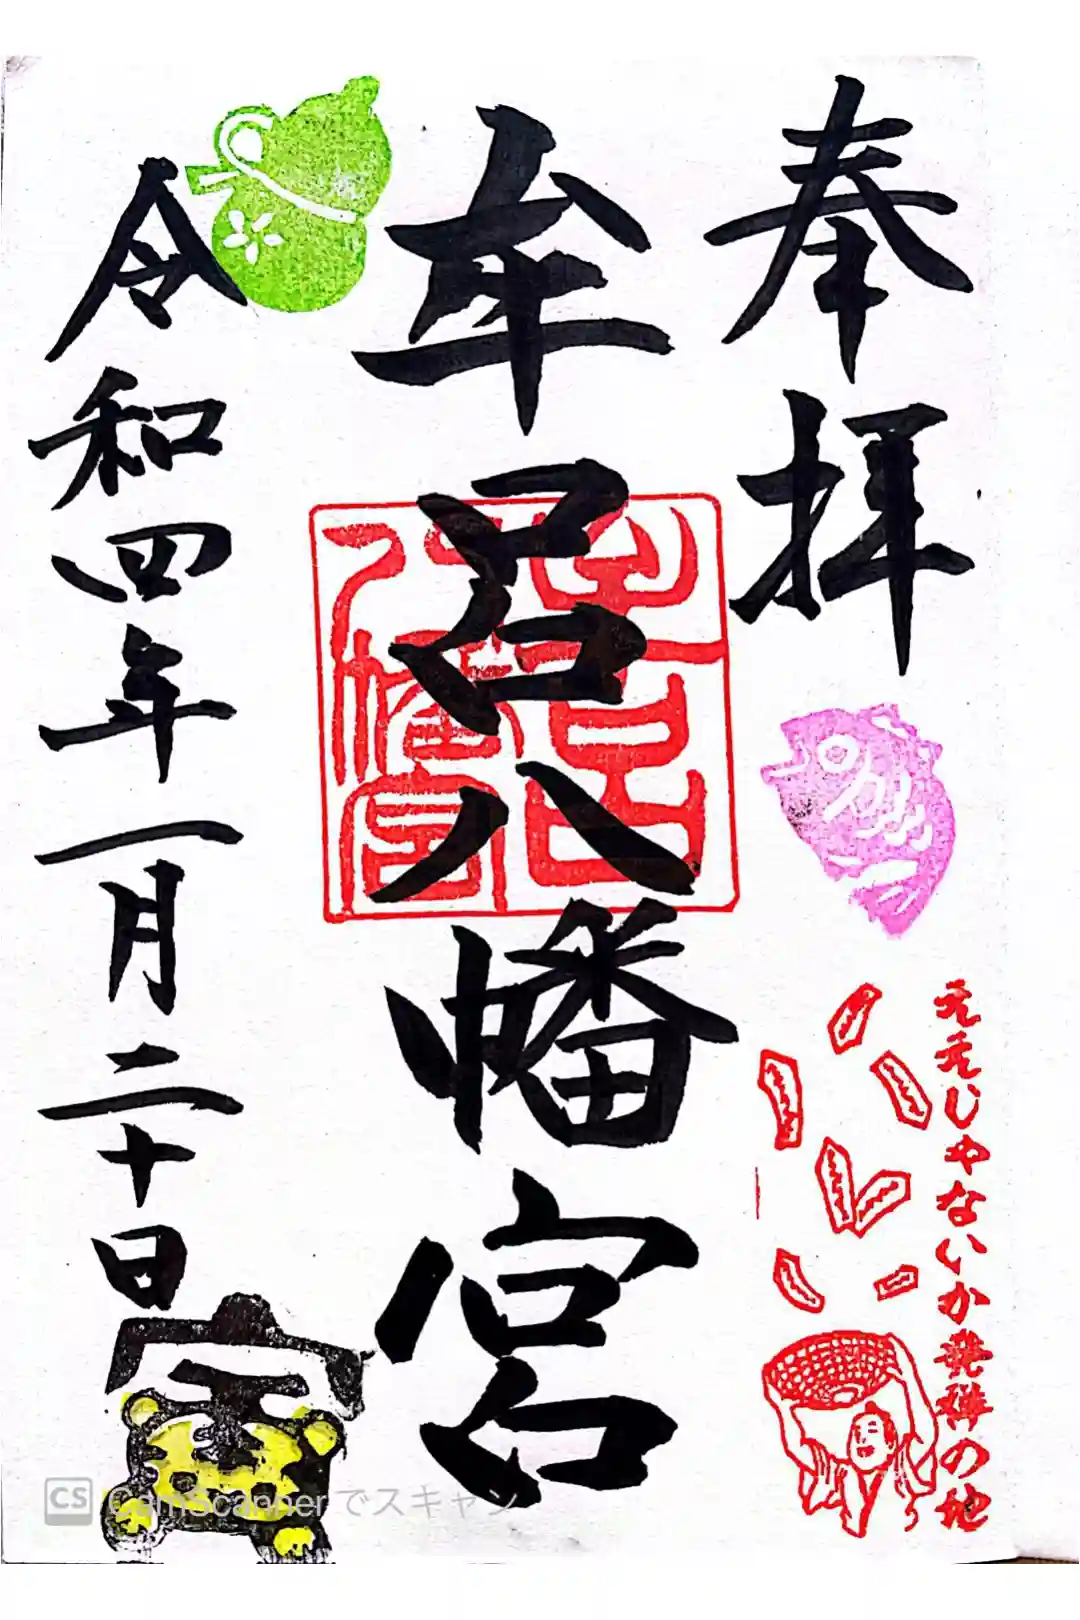 奉拝
牟呂八幡宮
令和四年一月二十日
ええじゃないか発祥の地
八幡宮
CS CamScannerでスキャン